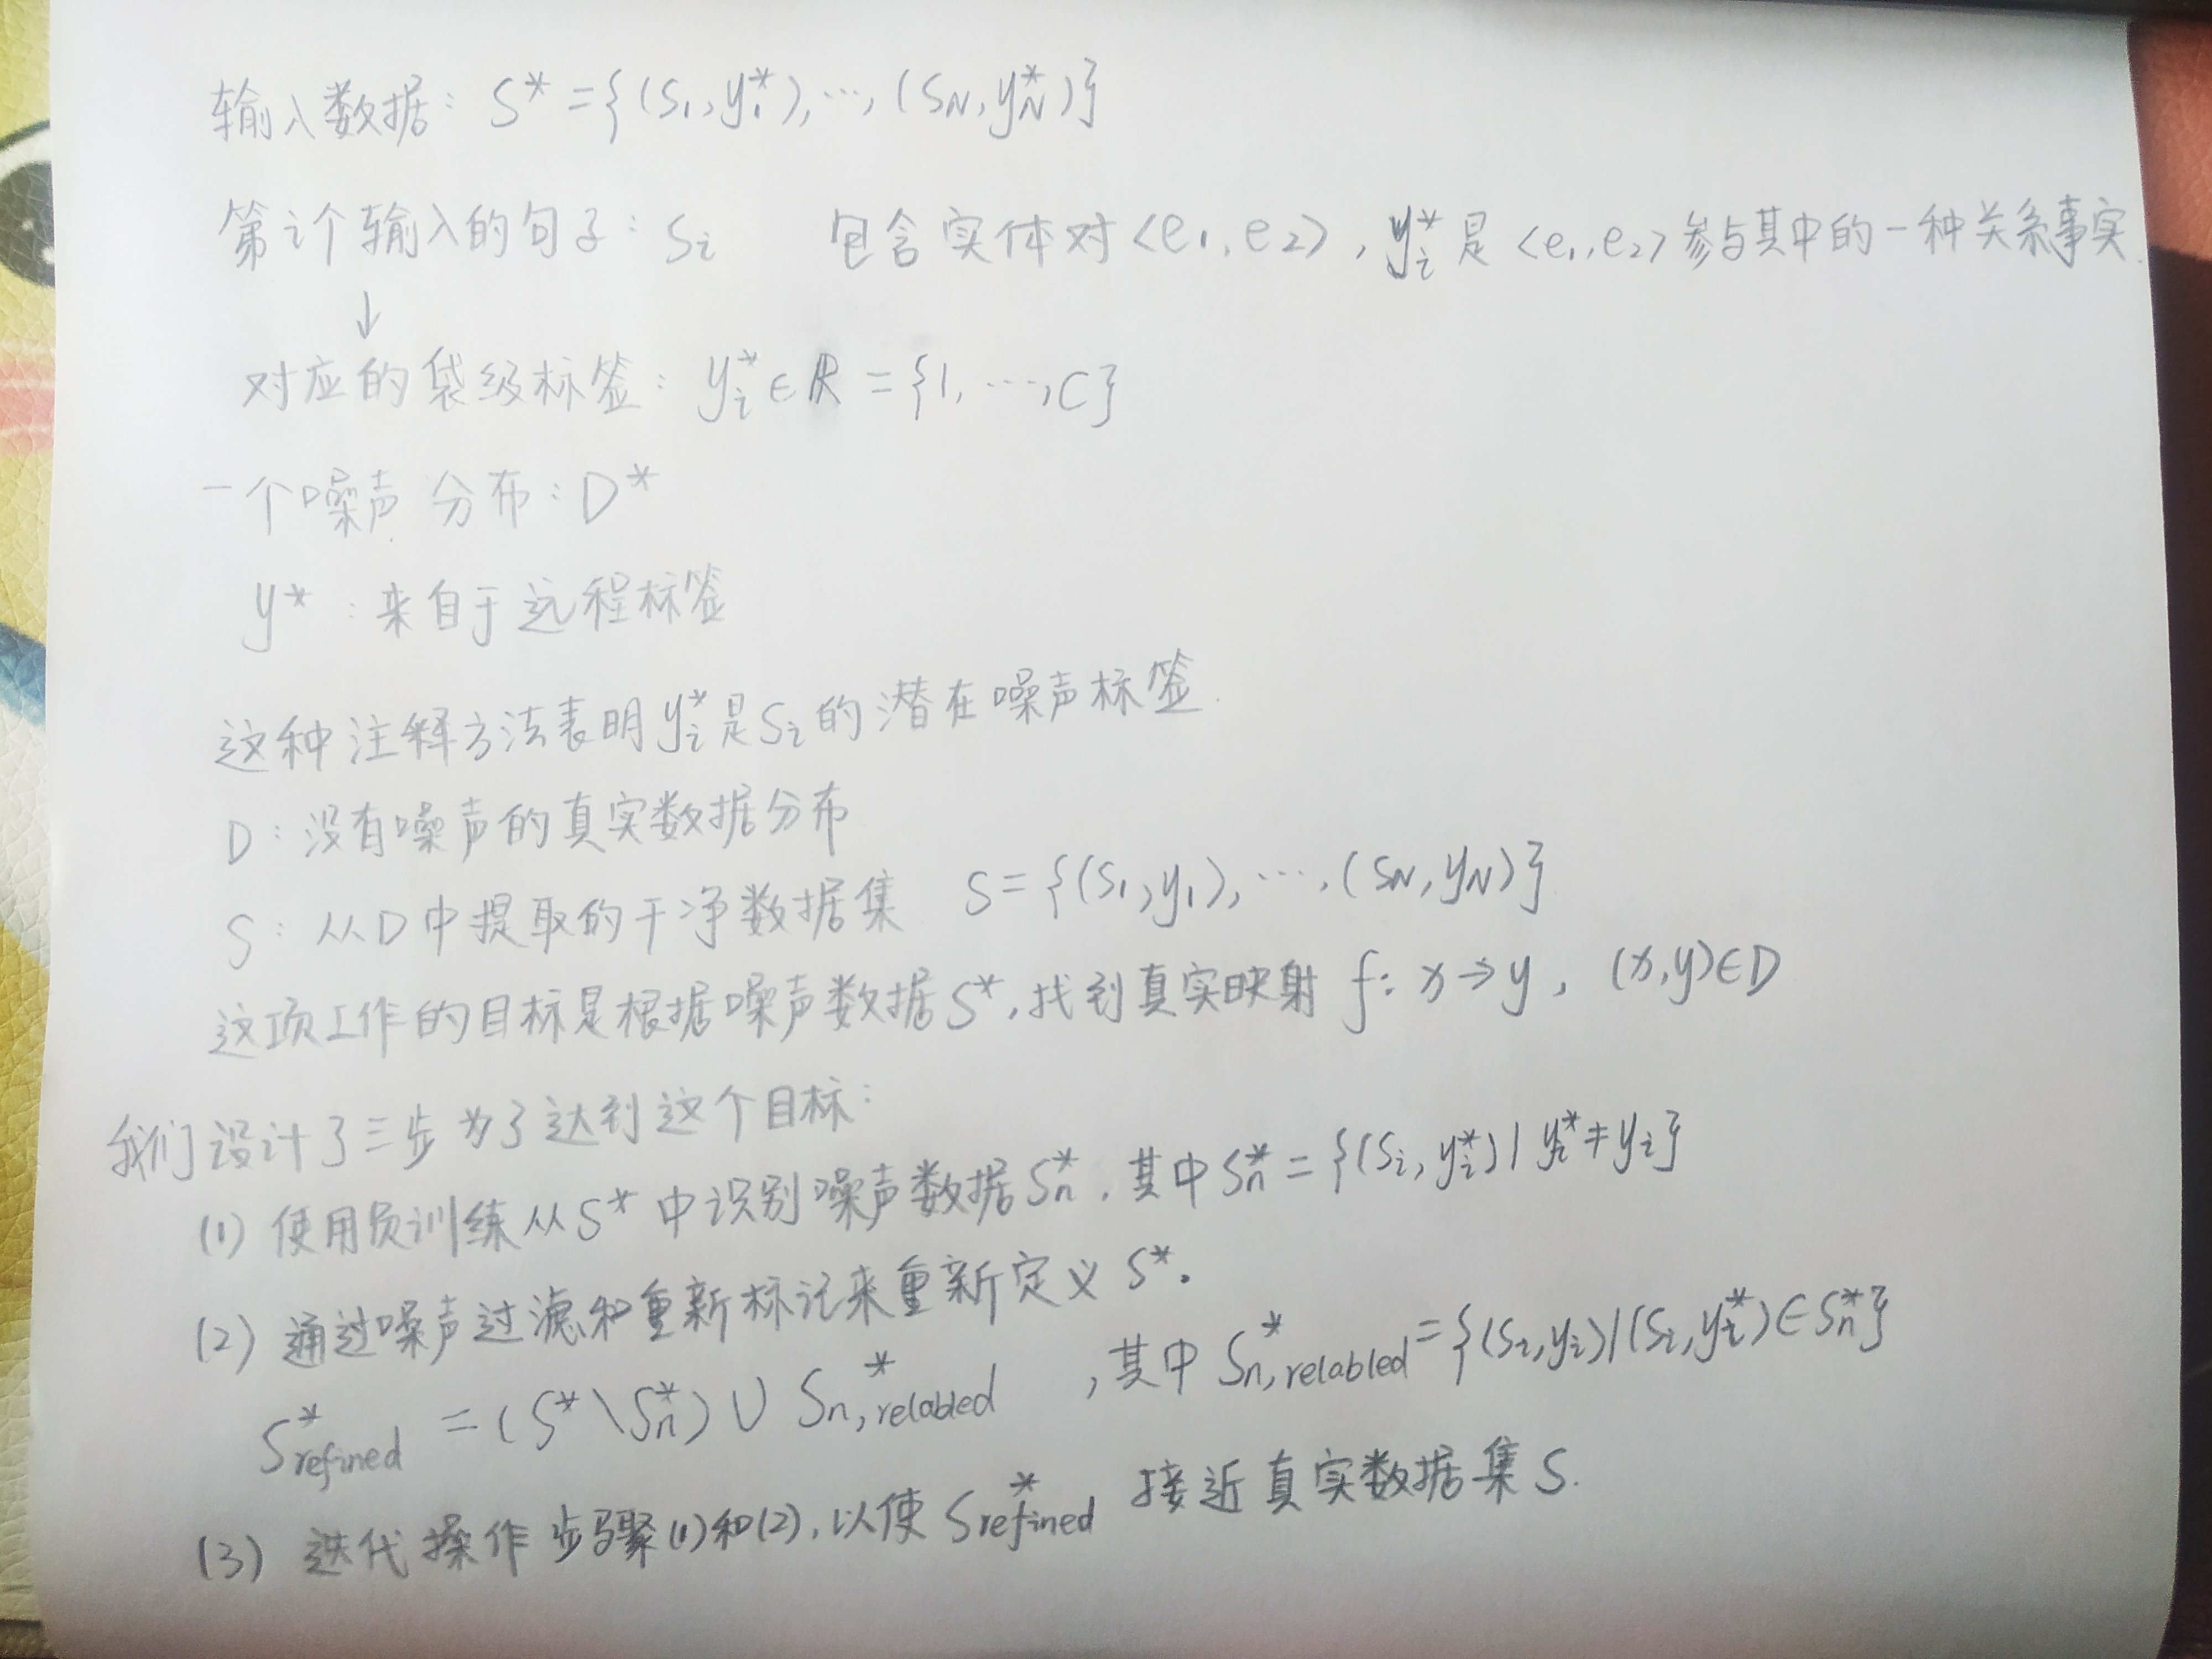 输入数据: S* = {(s₁, y₁*), ..., (s_N, y_N*)}
第i个输入的句子: sᵢ 包含实体对<e₁, e₂>, yᵢ*是<e₁, e₂>参与其中的一种关系事实.
↓
对应的袋级标签: yᵢ* ∈ ℝ = {1, ..., C}
一个噪声分布: D*
y*: 来自于远程标签
这种注释方法表明yᵢ*是sᵢ的潜在噪声标签.
D: 没有噪声的真实数据分布
S: 从D中提取的干净数据集 S = {(s₁, y₁), ..., (s_N, y_N)}
这项工作的目标是根据噪声数据S*, 找到真实映射 f: x → y, (x, y) ∈ D
我们设计了三步为了达到这个目标:
(1) 使用负训练从S*中识别噪声数据Sₙ*, 其中Sₙ* = {(sᵢ, yᵢ*) | yᵢ* ≠ yᵢ}
(2) 通过噪声过滤和重新标记来重新定义S*.
S*_refined = (S* \ Sₙ*) ∪ S*_n,relabled , 其中 S*_n,relabled = {(sᵢ, yᵢ) | (sᵢ, yᵢ*) ∈ Sₙ*}
(3) 迭代操作步骤(1)和(2), 以使S*_refined 接近真实数据集S.